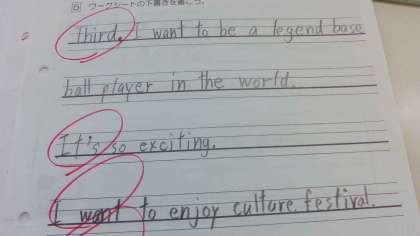 ⑤ ワークシートの下書きを書こう。
third. I want to be a legend base
ball player in the world.
It's so exciting.
I want to enjoy culture festival.